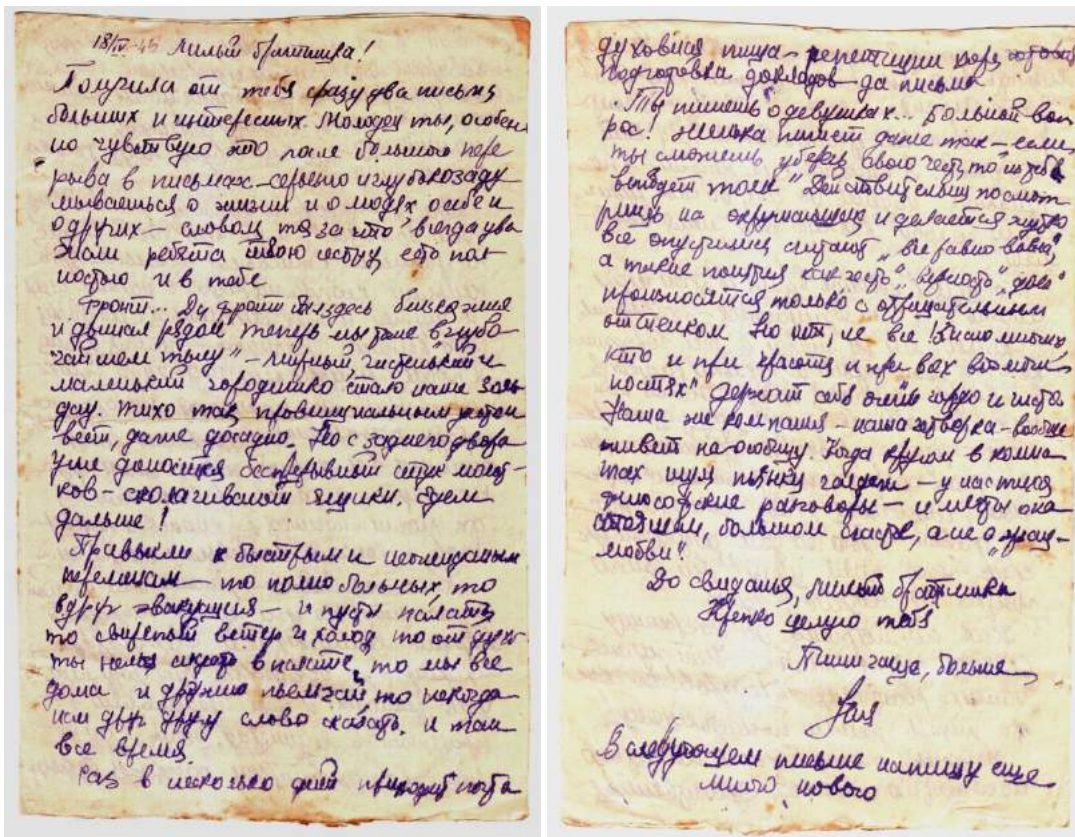 18/IV-45 Милый братишка!
Получила от тебя сразу два письма
больших и интересных. Молодец ты, особен
но чувствую это после большого пере
рыва в письмах – серьезно и глубоко заду
мываешься о жизни и о людях о себе и
о других – словом то за что всегда ува
жали ребята твою сестру есть пол
ностью и в тебе
Фронт... Да фронт был здесь близко
и дышал рядом теперь мы тоже в глубо
чайшем тылу" – мирный, чистенький и
маленький городишко стало наше
Тихо так провинциальным
веет, даже досадно. Но с заднего двора
уже доносится беспрерывный стук молот-
ков – сколачивают ящики. Едем
дальше!
Привыкли к быстрым и неожиданым
переменам – то полно больных, то
вдруг эвакуация – и пусты палаты
то свирепый ветер и холод то от духо
ты нельзя сидеть в палате, то мы все
дома и дружно пьем чай, то некогда
нам друг другу слово сказать. и так
все время.
Раз в несколько дней приходит почта
духовная пища – репетиции хора
подготовка докладов – да письма
Ты пишешь о девушках... Большой воп
рос! Женька пишет даже так – если
ты сможешь уберечь свою честь, то из тебя
выйдет толк" Действительно посмот
ришь на окружающих и делается жутко
все опустились считают „все равно война",
а такие понятия как „честь", „верность", „долг"
произносятся только с отрицательным
оттенком Но нет, не все! Я знаю многих,
кто и при красоте и при всех возможн
ностях" держат себя очень гордо и чисто
Наша же компания – наша четверка – вообще
живет на особицу. Когда кругом в комна
тах шум пьянки галдеж – у нас тихая
философские разговоры – и мечты о на
стоящем, большом счастье, а не о „
любви".
До свиданья, милый братишка
Крепко целую тебя
Пиши чаще, больше
В следующем письме напишу еще
много нового